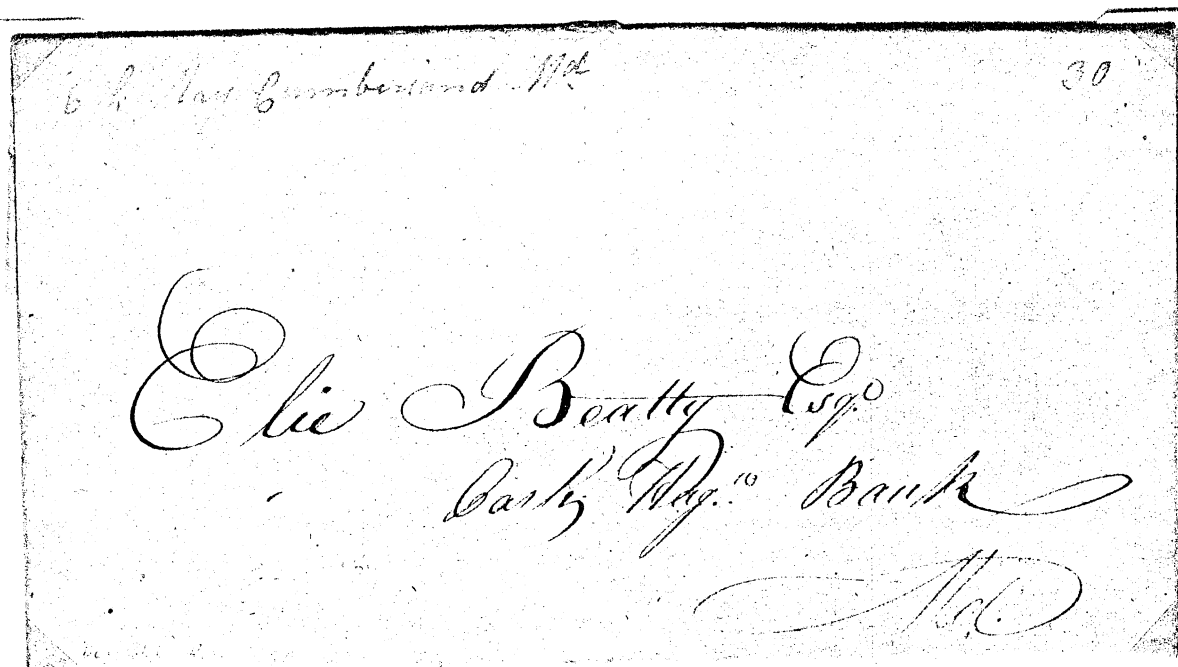 Cumberland Md 30
Elie Beatty Esqr
Cashr Hag.n Bank
Md.